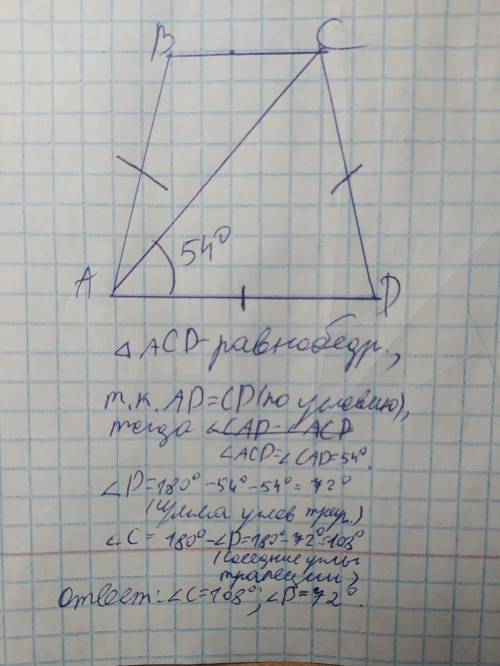 B C
54°
A D
△ ACD - равнобедр.,
т.к. AD=CD (по условию),
тогда ∠CAD=∠ACD
∠ACD=∠CAD=54°.
∠D=180°-54°-54°=72°
(сумма углов треуг.)
∠C=180°-∠D=180°-72°=108°
(соседние углы
трапеции)
Ответ: ∠C=108°; ∠D=72°.